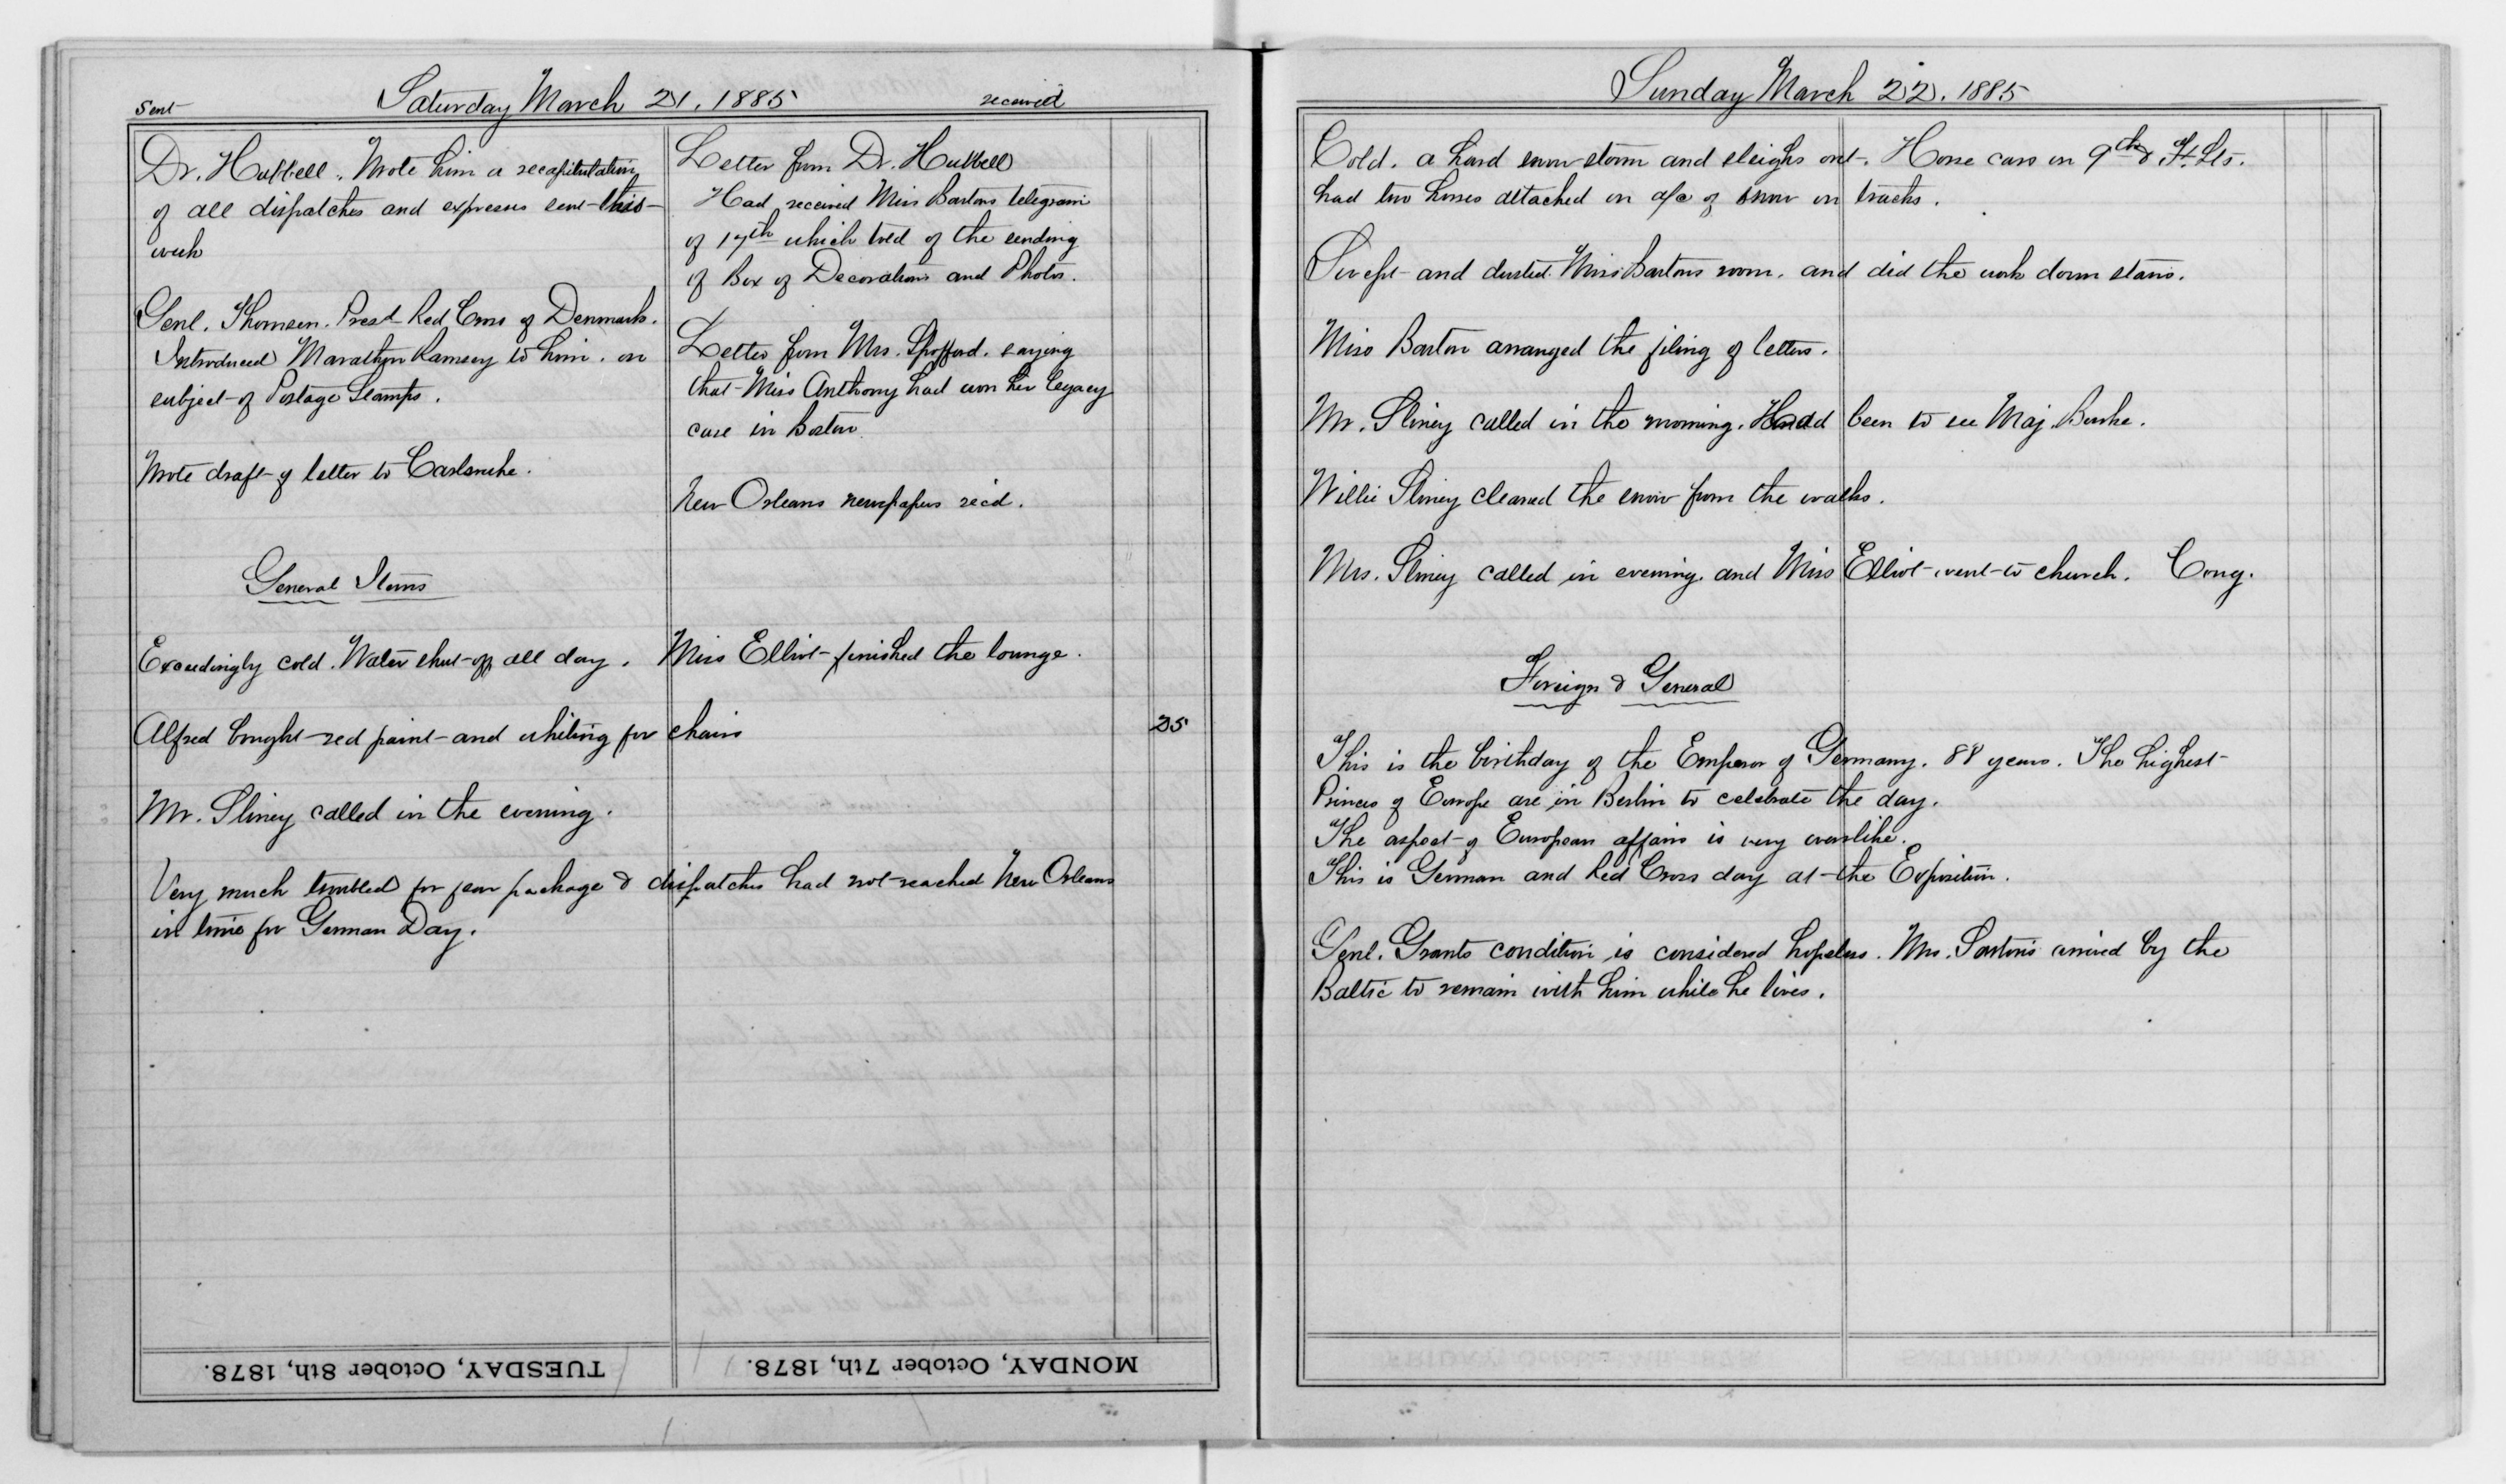 Sent
Saturday March 21. 1885
received
Dr. Hubbell. Wrote him a recapitulation
of all dispatches and expresses sent this
week
Genl. Thomsen. Prest Red Cross of Denmark.
Introduced Marathon Ramsey to him. on
subject of Postage Stamps.
Wrote draft of letter to Carlsruhe.
Letter from Dr. Hubbell
Had received Miss Bartons telegram
of 17th which told of the sending
of Box of Decorations and Photos.
Letter from Mrs. Spofford. saying
that Miss Anthony had won her legacy
case in Boston.
New Orleans newspapers rec'd.
General Items
Exceedingly cold. Water shut-off all day. Miss Elliot finished the lounge.
Alfred bought red paint and whiting for chairs 25
Mr. Sliney called in the evening.
Very much troubled for fear package & dispatches had not reached New Orleans
in time for German Day.
TUESDAY, October 8th, 1878.
MONDAY, October 7th, 1878.
Sunday March 22. 1885
Cold. a hard snow storm and sleighs out. Horse cars on 9th & F. Sts.
had two horses attached on a/c of snow on tracks.
Swept and dusted Miss Bartons room. and did the work down stairs.
Miss Barton arranged the filing of letters.
Mr. Sliney called in the morning. Had been to see Maj. Burke.
Willie Sliney cleared the snow from the walks.
Mrs. Sliney called in evening. and Miss Elliot went to church. Cong.
Foreign & General
This is the birthday of the Emperor of Germany. 88 years. The highest
Princes of Europe are in Berlin to celebrate the day.
The aspect of European affairs is very warlike.
This is German and Red Cross day at the Exposition.
Genl. Grants condition is considered hopeless. Mrs. Sartoris arrived by the
Baltic to remain with him while he lives.